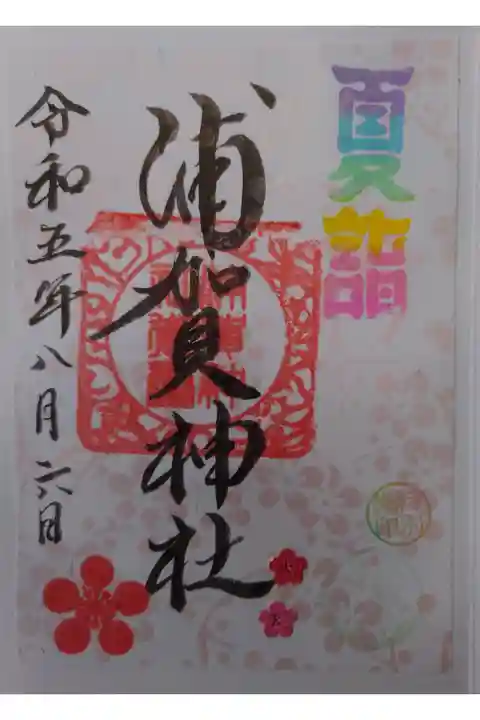 夏詣
浦賀神社
令和五年八月六日